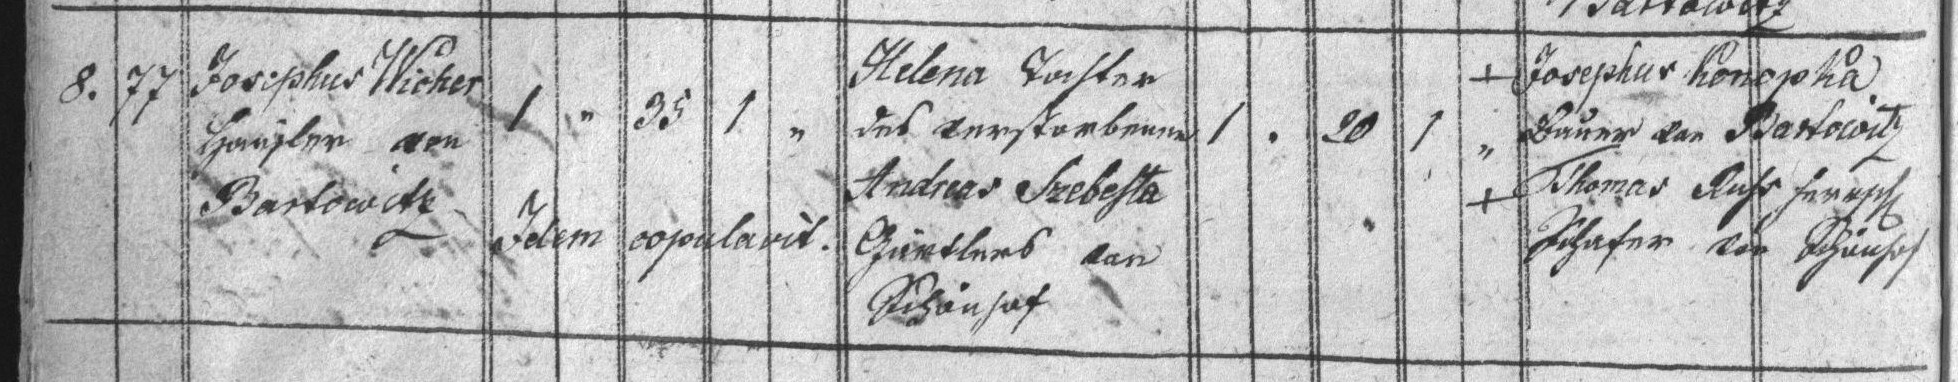 Bartowitz
8. 77 Josephus Wicher 1 " 35 1 " Helena Tochter 1 . 20 1 " + Josephus Konopka
Häusler von des verstorbenen Bauer von Bartowitz
Bartowitz Andreas Szebesta + Thomas Russ herrsch
Idem copulavit. Gärtlers von Schafer von Schönhof
Schönhof